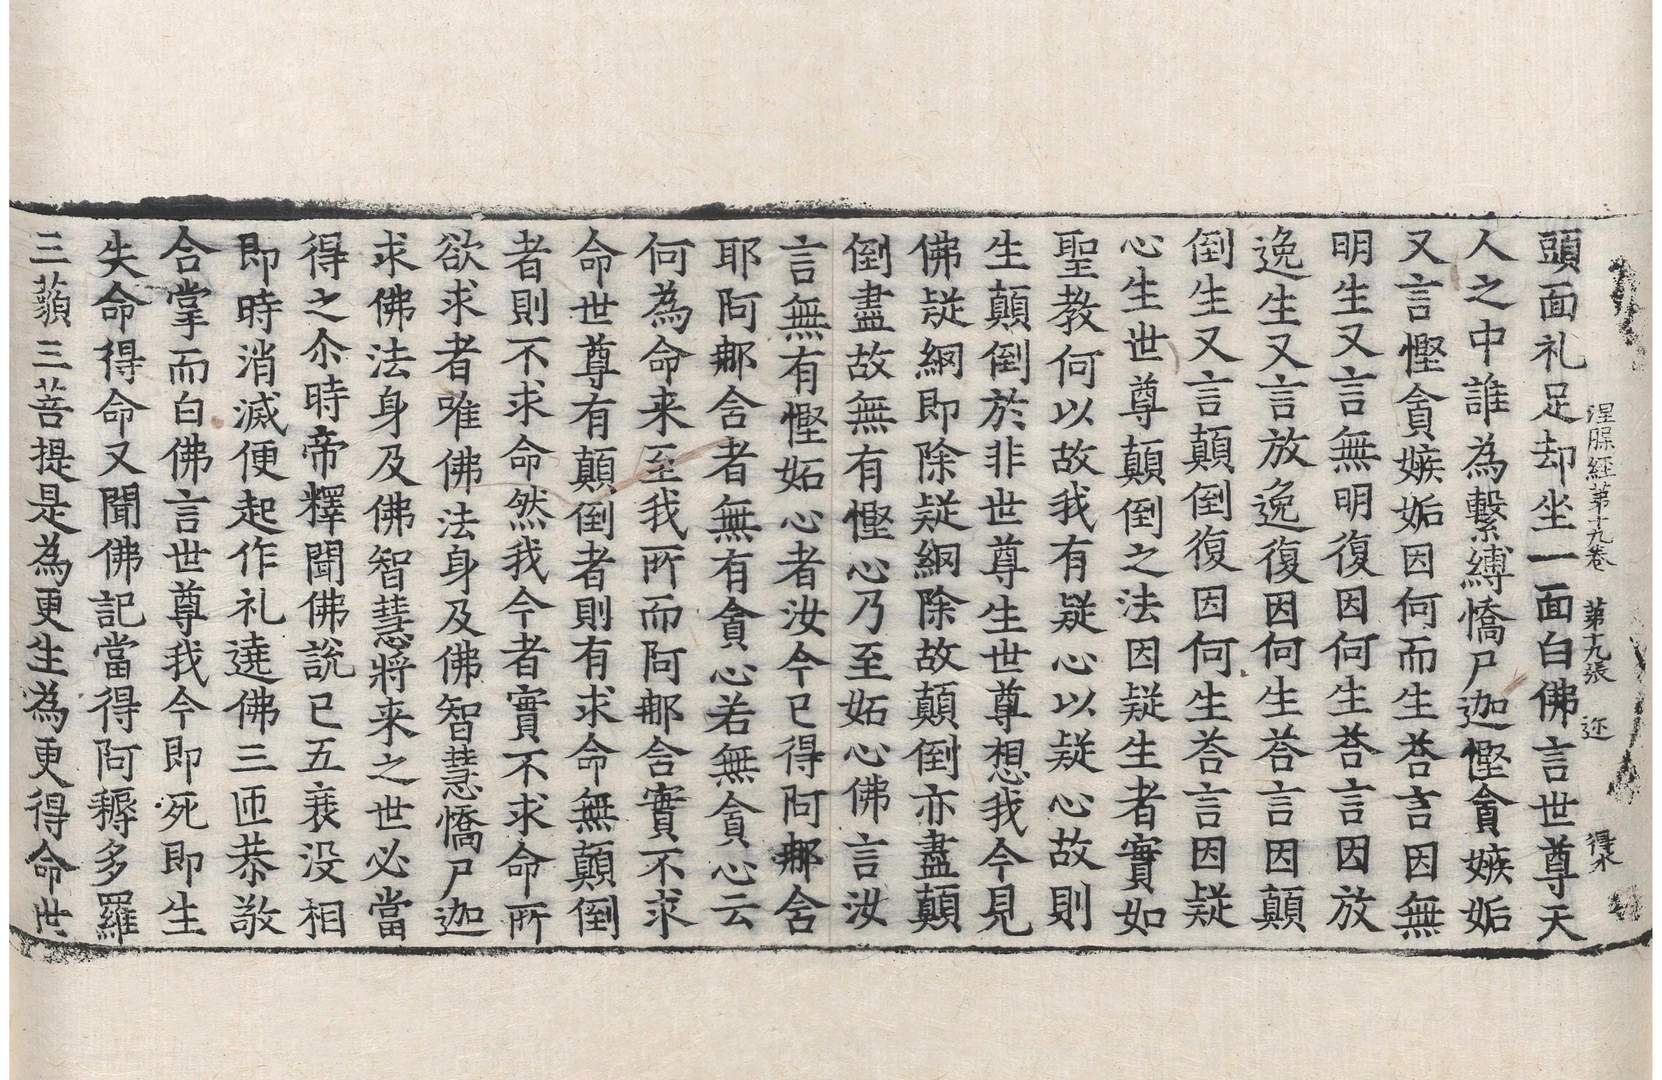 涅槃経第十九卷　第十九張　迩　得水
頭面礼足却坐一面白佛言世尊天
人之中誰為繫縛憍尸迦慳貪嫉妬
又言慳貪嫉妬因何而生荅言因無
明生又言無明復因何生荅言因放
逸生又言放逸復因何生荅言因顛
倒生又言顛倒復因何生荅言因疑
心生世尊顛倒之法因疑生者實如
聖教何以故我有疑心以疑心故則
生顛倒於非世尊生世尊想我今見
佛疑網即除疑網除故顛倒亦盡顛
倒盡故無有慳心乃至妬心佛言汝
言無有慳妬心者汝今已得阿那舍
耶阿那舍者無有貪心若無貪心云
何為命来至我所而阿那舍實不求
命世尊有顛倒者則有求命無顛倒
者則不求命然我今者實不求命所
欲求者唯佛法身及佛智慧憍尸迦
求佛法身及佛智慧將来之世必當
得之尒時帝釋聞佛說已五衰没相
即時消滅便起作礼遶佛三匝恭敬
合掌而白佛言世尊我今即死即生
失命得命又聞佛記當得阿耨多羅
三藐三菩提是為更生為更得命世